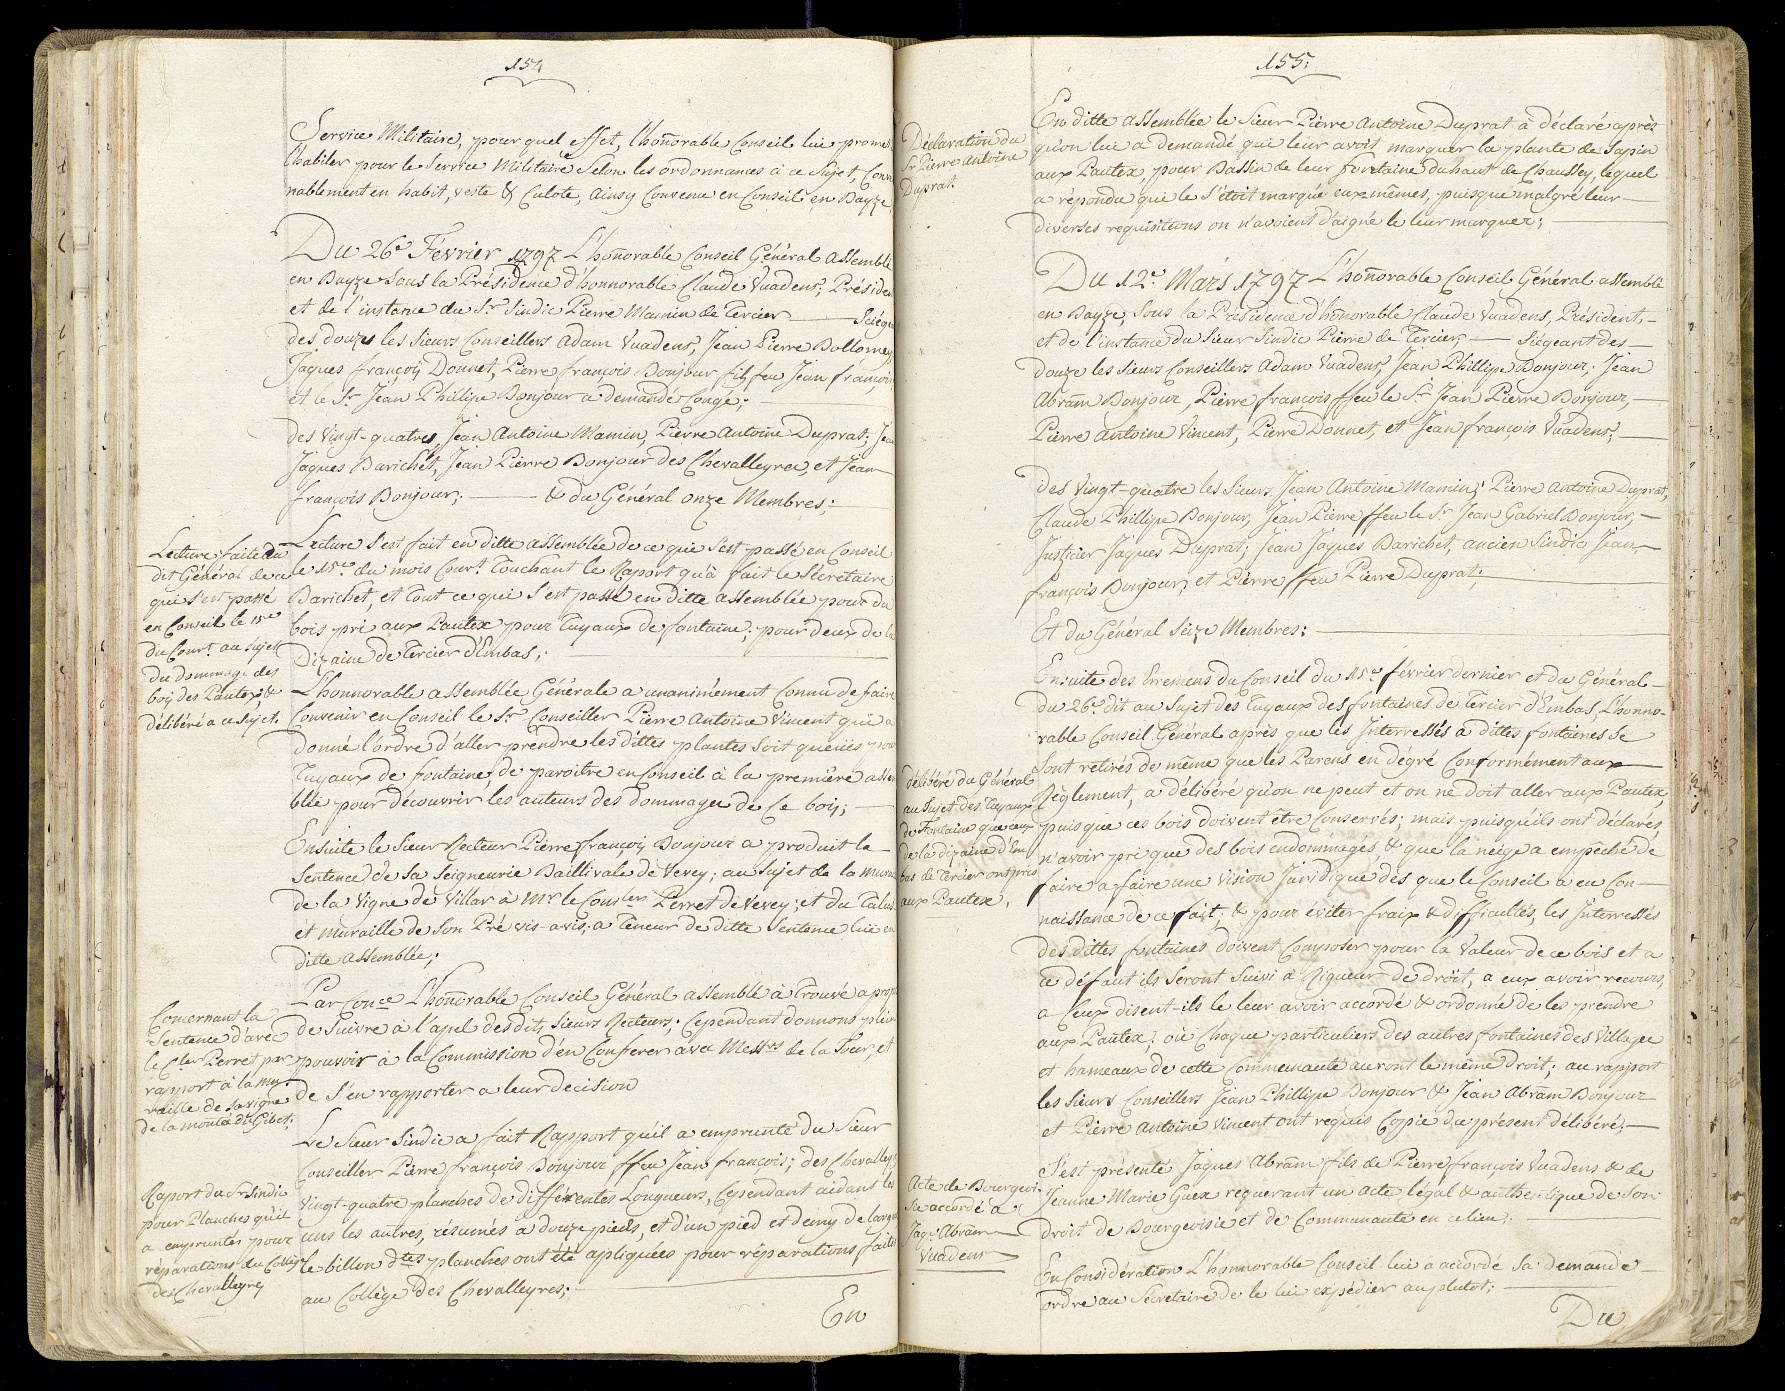 154
Service Militaire, pour quel effet, l'honorable Conseil lui prome
l'habiler pour le Service Militaire Selon les ordonnances à ce Sujet, Conve
nablement en habit, veste & Culote, Ainsy Convenu en Conseil en Bayze,
Du 26e Février 1797 L'honorable Conseil Général Assemblé
en Bayze Sous la Présidence d'honnorable Claude Vuadens, Présiden
et de l'instance du Sr Sindic Pierre Mamin de Tercier Sciégea
des douze les Sieurs Conseillers Adam Vuadens, Jean Pierre Dollomey,
Jaques françois Donnet, Pierre françois Bonjour fils feu Jean françois
et le Sr Jean Phillipe Bonjour a demandé Congé;
des Vingt-quatres, Jean Antoine Mamin, Pierre Antoine Duprat, Jea
Jaques Barichet, Jean Pierre Bonjour des Chevalleyres, et Jean
françois Bonjour; & du Général onze Membres;
Lecture faite du
dit Général de ce
qui s'est passé
en Conseil le 15e
du Court au sujet
du dommage des
bois des Pautex; &
délibéré a ce Sujet.
Lecture S'est fait en ditte assemblée de ce qui S'est passé en Conseil
le 15e du mois Court Touchant le Raport qu'à fait le Sécretaire
Barichet, et Tout ce qui S'est passé en ditte assemblée pour du
bois pri aux Pautex pour Tuyaux de fontaine; pour deux de la
Dizaine de Tercier d'Embas;
L'honnorable assemblée Générale a unanimément Connu de faire
Convenir en Conseil le Sr Conseiller Pierre Antoine Vincent qui a
donné l'ordre d'aller prendre les dittes plantes Soit queües pour
Tuyaux de fontaine, de paroitre en Conseil à la première assem
blée pour découvrir, les auteurs des dommages de Ce bois;
Ensuite le Sieur Recteur Pierre françois Bonjour a produit la
Sentence de Sa Seigneurie Baillivale de Vevey; au Sujet de la mura
de la Vigne de Villar à Mr le Conser Perret de Vevey; et du Talus
et muraille de Son Pré vis-a-vis; a Teneur de ditte Sentence lüe en
ditte assemblée;
Concernant la
Sentence d'avec
le Cler Perret par
rapport à la mu-
raille de sa vigne
de la montée du Gibet;
Par conce L'honorable Conseil Général assemblé à Trouvé a propo
de Suivre à l'apel desdits Sieurs Recteurs; Cependant donnons plein
pouvoir à la Commission d'en Conferer avec Messrs de la Tour, et
de S'en rapporter a leur decision
Raport du Sr Sindic
pour Planches qu'il
a empruntez pour
réparations du College
des Chevalleyres
Le Sieur Sindic a fait Rapport qu'il a emprunté du Sieur
Conseiller Pierre françois Bonjour ffeu Jean françois; des Chevalleyre
Vingt-quatre planches de différentes Longueurs, Cependant aidant les
uns les autres, résumés a douze pieds, et d'un pied et demy de large
le billon dtes planches ont été apliquées pour réparations faites
au Collège des Chevalleyres;
En
155.
Déclaration du
Sr Pierre Antoine
Duprat
En ditte assemblée le Sieur Pierre Antoine Duprat à déclaré après
qu'on lui a demandé qui leur avoit marquer la plante de Sapin
aux Pautex, pour Bassin de leur fontaine du haut de Chaussey, lequel
a répondu que le S'étoit marqué eux-mêmes, puisque malgré leur
diverses requisitions on n'avoient d'aigné le leur marquer;
Du 12e Mars 1797 L'honorable Conseil Général assemblé
en Bayze, Sous la Présidence d'honorable Claude Vuadens, Président,
et de l'instance du Sieur Sindic Pierre de Tercier, Siégeant des
douze les Sieurs Conseillers Adam Vuadens, Jean Phillipe Bonjour; Jean
Abram Bonjour, Pierre francois ffeu le Sr Jean Pierre Bonjour,
Pierre Antoine Vincent, Pierre Donnet, et Jean françois Vuadens;
des Vingt-quatre les Sieurs Jean Antoine Mamin; Pierre Antoine Duprat,
Claude Phillipe Bonjour, Jean Pierre ffeu le Sr Jean Gabriel Bonjour,
Justicier Jaques Duprat; Jean Jaques Barichet, ancien Sindic Jean
françois Bonjour, et Pierre ffeu Pierre Duprat;
Et du Général Sèize Membres:
délibéré du Général
au Sujet des Tuyaux
de Fontaine que ceux
de la dizaine d'Em
bas de Tercier ont pris
aux Pautex.
Ensuite des Erremens du Conseil du 15e février dernier et du Général
du 26e dit au Sujet des Tuyaux des fontaines de Tercier d'Embas, L'hono-
rable Conseil Général après que les Interressés a dittes fontaines se
Sont retirés de même que les Parens en dégré Conformément aux
Règlement, a délibéré qu'on ne peut et on ne doit aller aux Pautex,
puisque ces bois doivent être Conservés; mais puisqu'ils ont déclarés
n'avoir pri que des bois endommagés & que la neige a empeché de
faire a faire une Vision Juridique dès que le Conseil à eu Con-
naissance de ce fait; & pour éviter fraix & difficultés, les Interressés
des dittes fontaines doivent Composer pour la Valeur de ce bois et a
ce défaut ils Seront Suivi a Rigueur de droit, a eux avoir recours
a Ceux disent-ils le leur avoir accordé & ordonné de les prendre
aux Pautex; où Chaque particuliers des autres fontaines des Villages
et hameaux de cette Commenauté auront le même droit; au rapport
les Sieurs Conseillers Jean Phillipe Bonjour & Jean Abram Bonjour
et Pierre Antoine Vincent ont requis Copie du présent délibéré;
Acte de Bourgeoi-
sie accordé à
Jaqs Abram
Vuadens
S'est présenté Jaques Abram fils de Pierre françois Vuadens & de
Jeanne Marie Guex requerant un acte légal & authentique de Son
droit de Bourgeoisie et de Communauté en ce lieu;
En Considération L'honnorable Conseil lui a accordé Sa demande
ordre au Sécretaire de le lui expédier au plutot;
Du